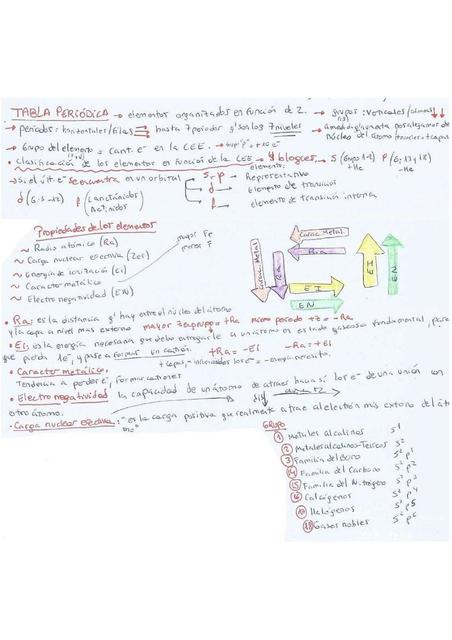 TABLA PERIÓDICA → elementos organizados en función de Z. → grupos: verticales/columnas
→ periodos: horizontales/filas → hasta 7 periodos y son los 7 niveles
núcleo del átomo
→ Grupo del elemento = cant. e⁻ en la CEE.
• Clasificación de los elementos en función de la CEE → 4 bloques → s (Grupo 1-2) p (G: 13 y 18)
+He -He
→ si el últ. e⁻ se encuentra en un orbital
s-p → Representativo
d → elemento de transición
f → elemento de transición interna
d (G: 3 → 12) f (Lantánidos
Actínidos)
Propiedades de los elementos
~ Radio atómico (Ra)
~ Carga nuclear efectiva (Zef)
~ Energía de ionización (EI)
~ Caracter metálico
~ Electronegatividad (EN)
mayor Fr
menor F
Carac. Metal
Ra
Carac. Metal
Ra
EI
EN
EI
EN
• Ra: es la distancia q' hay entre el núcleo del átomo
y la capa a nivel mas externo mayor Z en grupo = +Ra mismo periodo +Z = -Ra
• EI: es la energía necesaria que debo entregarle a un átomo en estado gaseoso fundamental, para
que pierda 1e⁻, y pase a formar un catión. +Ra = -EI -Ra = +EI
• Caracter metálico.
Tendencia a perder e⁻, formar cationes
• Electronegatividad la capacidad de un átomo de atraer hacia sí los e⁻ de una unión con
otro átomo.
• Carga nuclear efectiva: es la carga positiva que realmente atrae al electrón más externo del átomo
GRUPO
1 Metales alcalinos s¹
2 Metales alcalinos-Terreos s²
13 Familia del Boro s² p¹
14 Familia del Carbono s² p²
15 Familia del Nitrógeno s² p³
16 Calcógenos s² p⁴
17 Halógenos s² p⁵
18 Gases nobles s² p⁶